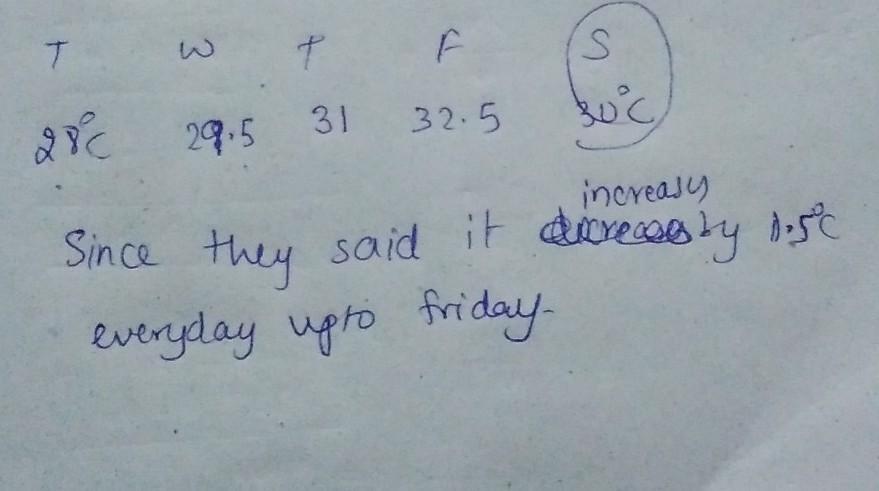 T W T F S
28°C 29.5 31 32.5 30°C
increases
Since they said it by 1.5°C
everyday upto friday.